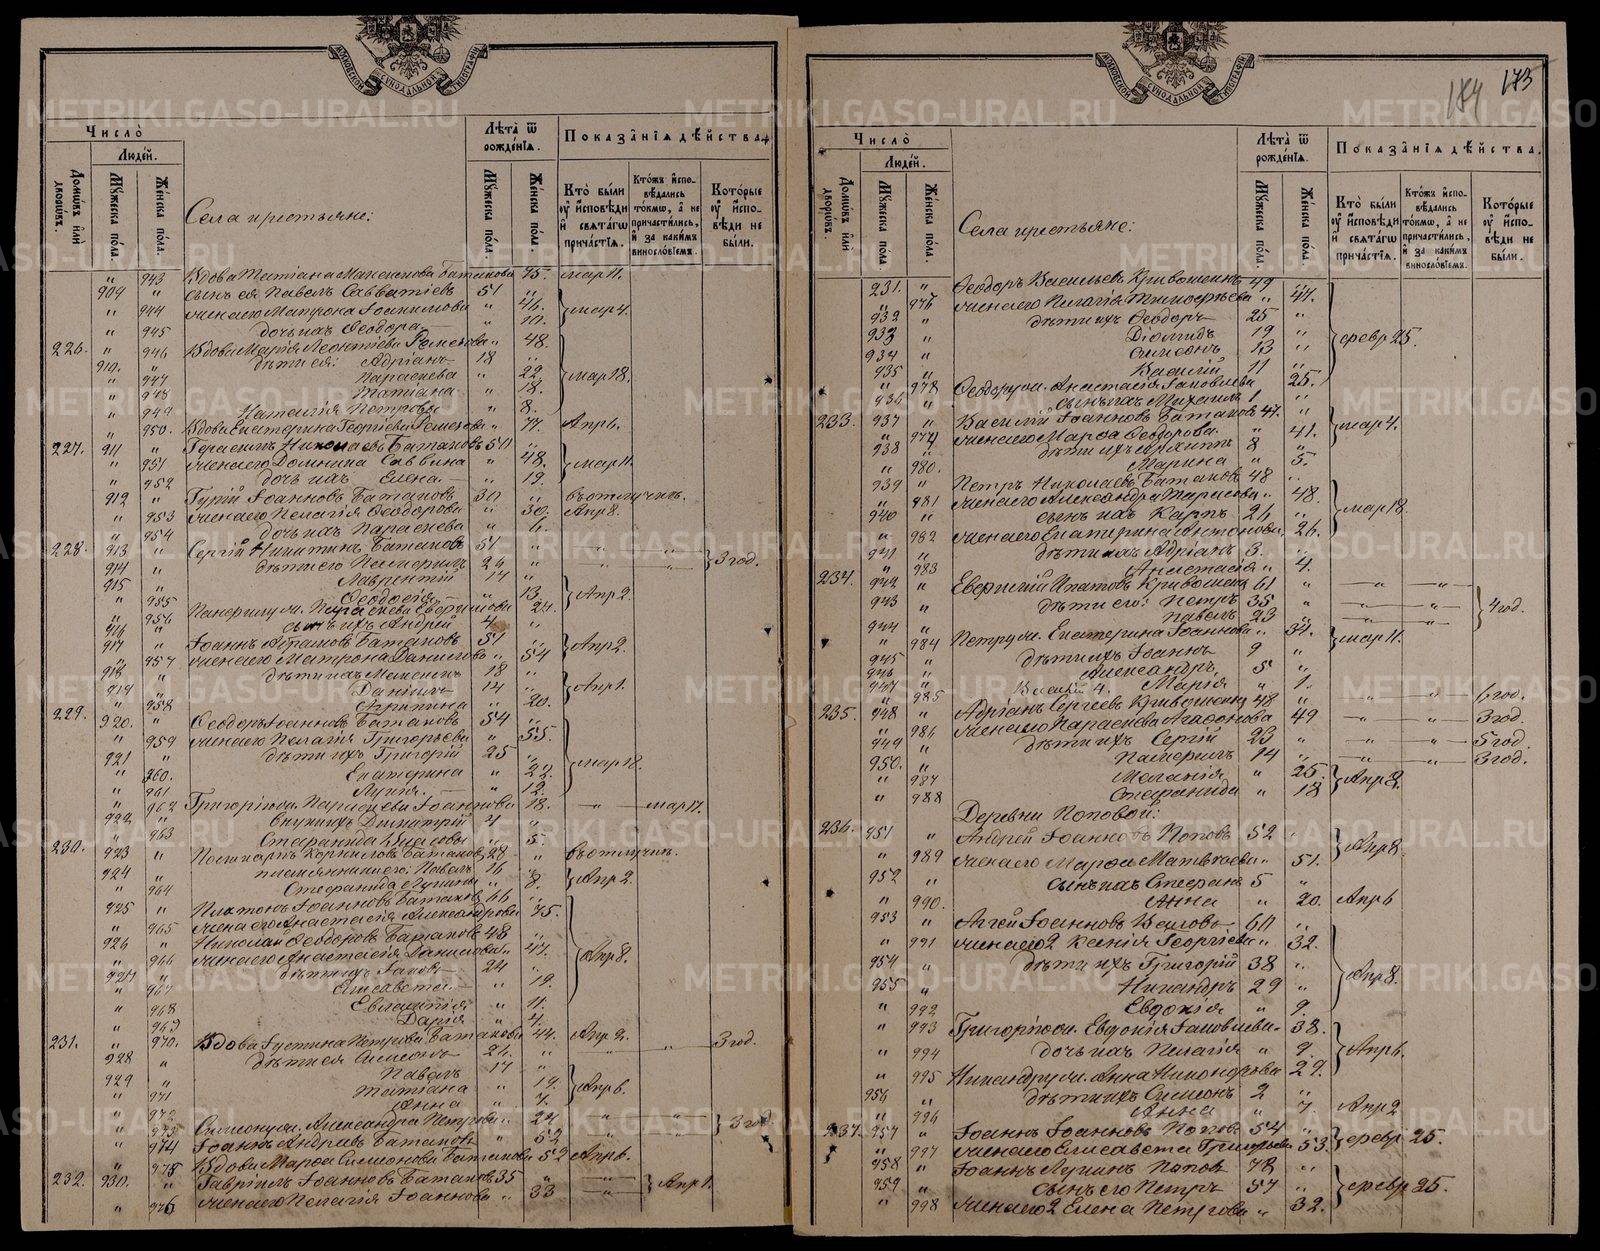 Число̀
Людей.
Домѡвъ или дворѡвъ.
Мꙋжеска пола.
Женска пола.
Села крестьяне:
Лѣта ѿ рожденїя.
Мꙋжеска пола.
Женска пола.
Показанїѧ дѣйства.
Кто были ᲂу исповѣди и свѧтагѡ причастїѧ.
Ктожъ исповѣдались токмѡ, а не причастились, и за какимъ винословїемъ.
Которые ᲂу исповѣди не были.
" 943 Вдова Татіана Максимова Батакова " 75. мар 11.
909 " сынъ ея Павелъ Савватіевъ 51 "
" 944 жена его Матрона Іоакимова " 46. мар 4.
" 945 дочь ихъ Ѳеодора " 10.
226. " 946 Вдова Марія Леонтіева " 48.
910. " дѣти ея: Адріанъ 18 "
" 947 Параскева " 22. мар 18.
" 948 Татіана " 18.
" 949 Наталія Петровы " 8.
" 950. Вдова Екатерина Георгіева " 77. Апр 6.
227. 911 " Герасимъ Николаевъ Батаковъ 50 "
" 951 жена его Домника Саввина " 48. мар 11.
" 952 дочь ихъ Елена " 19.
912 " Гурій Іоанновъ Батаковъ 30 " въ отлучкѣ.
" 953 жена его Пелагія Ѳеодорова " 30. Апр 8.
" 954 дочь ихъ Параскева " 6.
228. 913 " Сергій Никитинъ Батаковъ 51 " " " 3 год.
914 " дѣти его 26 "
915 " Лаврентій 17 "
" 955 Ѳеодосія " 13. Апр 2.
" 956 Параскева " 24.
916 " сынъ ихъ Андрей 4 "
917 " Іоаннъ Абрамовъ Батаковъ 51 " Апр 2.
" 957 жена его Матрона Данилова " 54
918 " дѣти ихъ 18 "
919 " Даніилъ 14 " Апр 1.
" 958 Агрипина " 20.
229. 920. " Ѳеодоръ Іоанновъ Батаковъ 54 "
" 959 жена его Пелагія Григорьева " 55.
921 " дѣти ихъ Григорій 25 "
" 960. Екатерина " 22. мар 18.
" 961 " 12.
" 962 Григорію ж. Параскева Іоаннова " 18. " мар 17.
922 " внукъ ихъ Димитрій 4 "
" 963 Стефанида " 5.
230. 923 " Корниловъ Батаковъ 28 " въ отлучкѣ.
924 " племянники его: Павелъ 16 " Апр 2.
" 964 Стефанида " 8.
925 " Платонъ Іоанновъ Батаковъ 66 "
" 965 жена его Анастасія Александрова " 75.
926 " Николай Ѳеодоровъ Батаковъ 48 "
" 966 жена его Анастасія Данилова " 47. Апр 8.
927 " дѣти ихъ Іаковъ 24 "
" 967 Елисавета " 19.
" 968 Евлампія " 11.
" 969 Дарія " 4.
231. " 970. Вдова Іустина Петрова Батакова " 44. Апр 2.
928 " дѣти ея Симеонъ 21. " " 3 год.
929 " Павелъ 17 "
" 971 Татіана " 19. Апр 6.
" 972 Анна " 7.
" 973 Симеону ж. Александра Петрова " 22. " "
" 974 Іоаннъ Андреевъ Батаковъ " 62 " 3 год
" 975 Вдова Марѳа Симеонова Батакова " 52 Апр 6.
232. 930. " Гавріилъ Іоанновъ Батаковъ 35 " Апр 1.
" 976 жена его Пелагія Іоаннова " 33
174 173
Число̀
Людей.
Домѡвъ или дворѡвъ.
Мꙋжеска пола.
Женска пола.
Села крестьяне:
Лѣта ѿ рожденїя.
Мꙋжеска пола.
Женска пола.
Показанїѧ дѣйства.
Кто были ᲂу исповѣди и свѧтагѡ причастїѧ.
Ктожъ исповѣдались токмѡ, а не причастились, и за какимъ винословїемъ.
Которые ᲂу исповѣди не были.
931. " Ѳеодоръ Васильевъ Кривошеинъ 49 "
" 977 жена его Пелагія Тимоѳеева " 47.
932 " дѣти ихъ Ѳеодоръ 25 "
933 " Діомидъ 19 " февр 25.
934 " Симеонъ 13 "
935 " Василій 11 "
" 978 Ѳеодору ж. Анастасія Іаковлева " 25.
936 " сынъ ихъ Михаилъ 1 "
233. 937 " Василій Іоанновъ Батаковъ 47. "
" 979 жена его Марѳа Ѳеодорова " 41. мар 4.
938 " дѣти ихъ 8 "
" 980. Марина " 5.
939 " Петръ Николаевъ Батаковъ 48 "
" 981 жена его Александра Тарасова " 48.
940 " сынъ ихъ Карпъ 26 " мар 18.
" 982 жена его Екатерина Антонова " 26.
941 " дѣти ихъ Адріанъ 3. "
" 983 Анастасія " 4.
234. 942 " Евергетій Ипатовъ Кривошеинъ 61 " " "
943 " дѣти его: Петръ 35 " " " 4 год.
944 " Павелъ 23 " " "
" 984 Петру ж. Екатерина Іоаннова " 31. мар 11.
945 " дѣти ихъ Іоаннъ 9 "
946 " Александръ 5 "
947 " Василій 4. Марія " 1.
" 985 " " 6 год.
235. 948 " Адріанъ Сергѣевъ Кривошеинъ 48 " " " 3 год.
" 986 жена его Параскева Агаѳонова 49 " " 5 год.
949 " дѣти ихъ Сергій 23 " " " 3 год.
950. " 14 "
" 987 Маланія " 25. Апр 8.
" 988 Стефанида " 18
Деревни Поповой:
236. 951 " Андрей Іоанновъ Поповъ 52 " Апр 8
" 989 жена его Марѳа Матвѣева " 51.
952 " сынъ ихъ Стефанъ 5 "
" 990. Анна " 20. Апр 6
953 " Аггей Іоанновъ 60 "
" 991 жена его 2 Ксенія Георгіева " 32.
954 " дѣти ихъ Григорій 38 " Апр 8.
955 " Никандръ 29 "
" 992 Евдокія " 9.
" 993 Григорію ж. Евдокія Іаковлева " 38.
" 994 дочь ихъ Пелагія " 9. Апр 6.
" 995 Никандру ж. Анна " 29.
956 " дѣти ихъ Симеонъ 2 "
" 996 Анна " 7 Апр 2
237. 957 " Іоаннъ Іоанновъ Поповъ 54 " февр 25.
" 997 жена его Елисавета Григорьева " 53.
958 " Іоаннъ Лукинъ Поповъ 78 "
959 " сынъ его Петръ 57 " февр 25.
" 998 жена его 2 Елена Петрова " 32.
METRIKI.GASO-URAL.RU